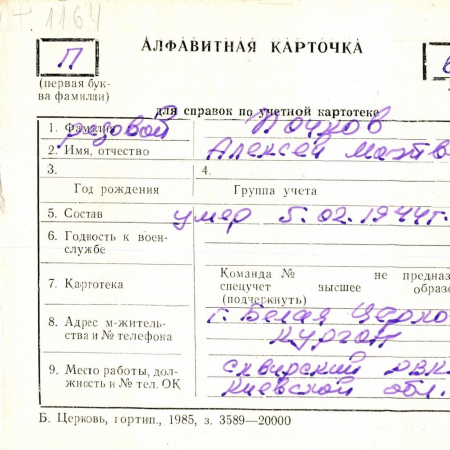 + 1164
П
АЛФАВИТНАЯ КАРТОЧКА
(первая бук-
ва фамилии)
для справок по учетной картотеке
1. Фамилия рядовой Почков
2. Имя, отчество Алексей Матв
3.
4.
Год рождения
Группа учета
5. Состав умер 5.02.1944г.
6. Годность к воен-
службе
7. Карготека
Команда № не предназ
спецучет высшее образо
(подчеркнуть)
8. Адрес м-житель-
ства и № телефона
г. Белая Церко
Курган
9. Место работы, дол-
жность и № тел. ОК
Сквирский РВК
Киевской обл.
Б. Церковь, гортип., 1985, з. 3589—20000